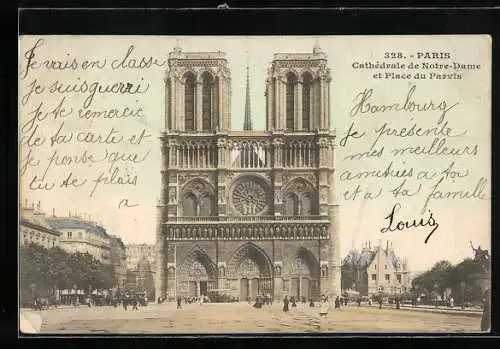 328. - PARIS
Cathédrale de Notre-Dame
et Place du Parvis
Je vais en classe
je suis guéri
je te remercie
de ta carte et
je pense que
tu te plais
a
Hambourg
je présente
mes meilleurs
amitiés a toi
et a ta famille
Louis